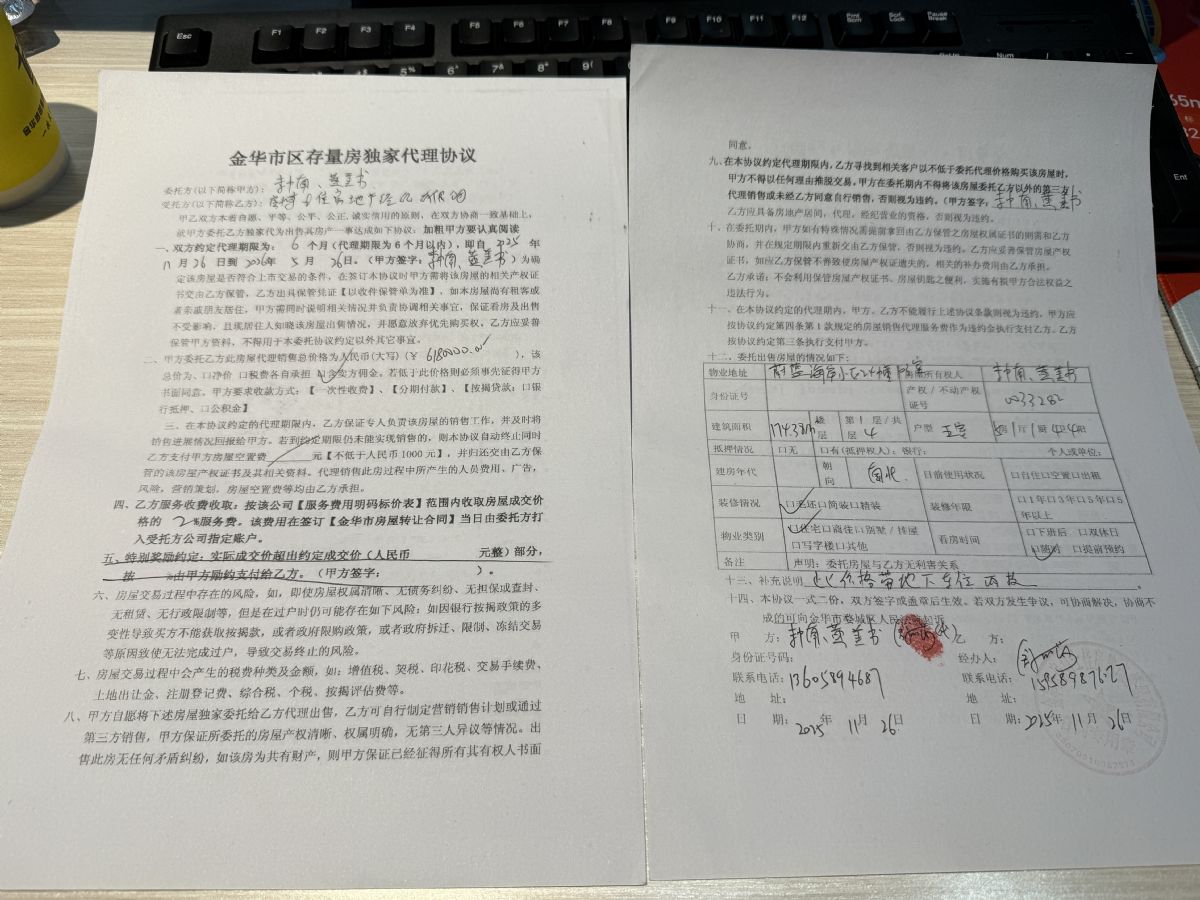 Esc F1 F2 F3 F4 F5 F6 F7 F8 F9 F10 F11 F12 Prnt Scrn Scr Lock Pause Break
金华市区存量房独家代理协议
委托方(以下简称甲方):
受托方(以下简称乙方):
甲乙双方本着自愿、平等、公平、公正,诚实信用的原则,在双方协商一致基础上,
就甲方委托乙方独家代为出售其房产一事达成如下协议:加粗甲方要认真阅读
一、双方约定代理期限为: 6 个月(代理期限为6个月以内),即自 2025 年
11 月 26 日到 2026年 5 月 26日。(甲方签字: )为确
定该房屋是否符合上市交易的条件,在签订本协议时甲方需将该房屋的相关产权证
书交由乙方保管,乙方出具保管凭证【以收件保管单为准】,如本房屋尚有租客或
者亲戚朋友居住,甲方需同时说明相关情况并负责协调相关事宜,保证看房及出售
不受影响,且现居住人知晓该房屋出售情况,并愿意放弃优先购买权。乙方应妥善
保管甲方资料,不得用于本委托协议约定以外其它事宜。
二、甲方委托乙方此房屋代理销售总价格为人民币(大写)(¥ 6180000.00 ),该
总价为、口净价 口税费各自承担 口含卖方佣金。若低于此价格则必须事先征得甲方
书面同意。甲方要求收款方式:【一次性收费】、【分期付款】、【按揭贷款:口银
行抵押、口公积金】
三、在本协议约定的代理期限内,乙方保证专人负责该房屋的销售工作,并及时将
销售进展情况回报给甲方。若到约定期限仍未能实现销售的,则本协议自动终止同时
乙方支付甲方房屋空置费 元【不低于人民币1000元】,并归还交由乙方保
管的该房屋产权证书及其相关资料。代理销售此房过程中所产生的人员费用、广告,
风险,营销策划,房屋空置费等均由乙方承担。
四、乙方服务收费收取:按该公司【服务费用明码标价表】范围内收取房屋成交价
格的 2 %服务费。该费用在签订【金华市房屋转让合同】当日由委托方打
入受托方公司指定账户。
五、特别奖励约定:实际成交价超出约定成交价(人民币 元整)部分,
按 %由甲方励约支付给乙方。(甲方签字: )。
六、房屋交易过程中存在的风险,如,即使房屋权属清晰、无债务纠纷、无担保或查封、
无租赁、无行政限制等,但是在过户时仍可能存在如下风险:如因银行按揭政策的多
变性导致买方不能获取按揭款,或者政府限购政策,或者政府拆迁、限制、冻结交易
等原因致使无法完成过户,导致交易终止的风险。
七、房屋交易过程中会产生的税费种类及金额,如:增值税、契税、印花税、交易手续费、
土地出让金、注册登记费、综合税、个税、按揭评估费等。
八、甲方自愿将下述房屋独家委托给乙方代理出售,乙方可自行制定营销销售计划或通过
第三方销售,甲方保证所委托的房屋产权清晰、权属明确,无第三人异议等情况。出
售此房无任何矛盾纠纷,如该房为共有财产,则甲方保证已经征得所有其有权人书面
同意。
九、在本协议约定代理期限内,乙方寻找到相关客户以不低于委托代理价格购买该房屋时,
甲方不得以任何理由推脱交易。甲方在委托期内不得将该房屋委托乙方以外的第三者
代理销售或未经乙方同意自行销售,否则视为违约。(甲方签字:
乙方应具备房地产居间,代理,经纪营业的资格,否则视为违约。
十、在委托期内,甲方如有特殊情况需提前拿回由乙方保管之房屋权属证书的则需和乙方
协商,并在规定期限内重新交由乙方保管,否则视为违约。乙方应妥善保管房屋产权
证书,如应乙方保管不善致使房屋产权证遗失的,相关的补办费用由乙方承担。
乙方承诺:不会利用保管房屋产权证书、房屋钥匙之便利,实施有损甲方合法权益之
违法行为。
十一、在本协议约定的代理期内,甲方。乙方不能履行上述协议条款则视为违约,甲方应
按协议约定第四条第1款规定的房屋销售代理服务费作为违约金执行支付乙方。乙方
按协议约定第三条执行支付甲方。
十二、委托出售房屋的情况如下:
物业地址 蔚蓝海岸 所有权人
身份证号 产权/不动产权证号 00233282
建筑面积 174.38m² 楼层 第 1 层/共 4 户型 5房1厅1厨4卫4阳
抵押情况 口无 口有(抵押权人):银行: 个人或单位:
建房年代 朝向 南北 目前使用状况 口自住口空置口出租
装修情况 口毛坯口简装口精装 装修年限 口1年口3年口5年口5年以上
物业类别 口住宅口商住口别墅/排屋 口写字楼口其他 看房时间 口下班后 口双休日 口随时 口提前预约
备注 声明:委托房屋与乙方无利害关系
十三、补充说明 此价格带地下车位两位
十四、本协议一式二份,双方签字或盖章后生效。若双方发生争议,可协商解决,协商不
成的可向金华市婺城区人民法院起诉
甲 方: 乙 方:
身份证号码: 经办人:
联系电话:13605894687 联系电话:15958987627
地 址: 地 址:
日 期: 2025年 11月 26日 日 期:2025年 11月 26日